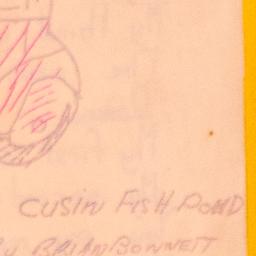 CUSIN FISH POND
By BRIAN BONNETT